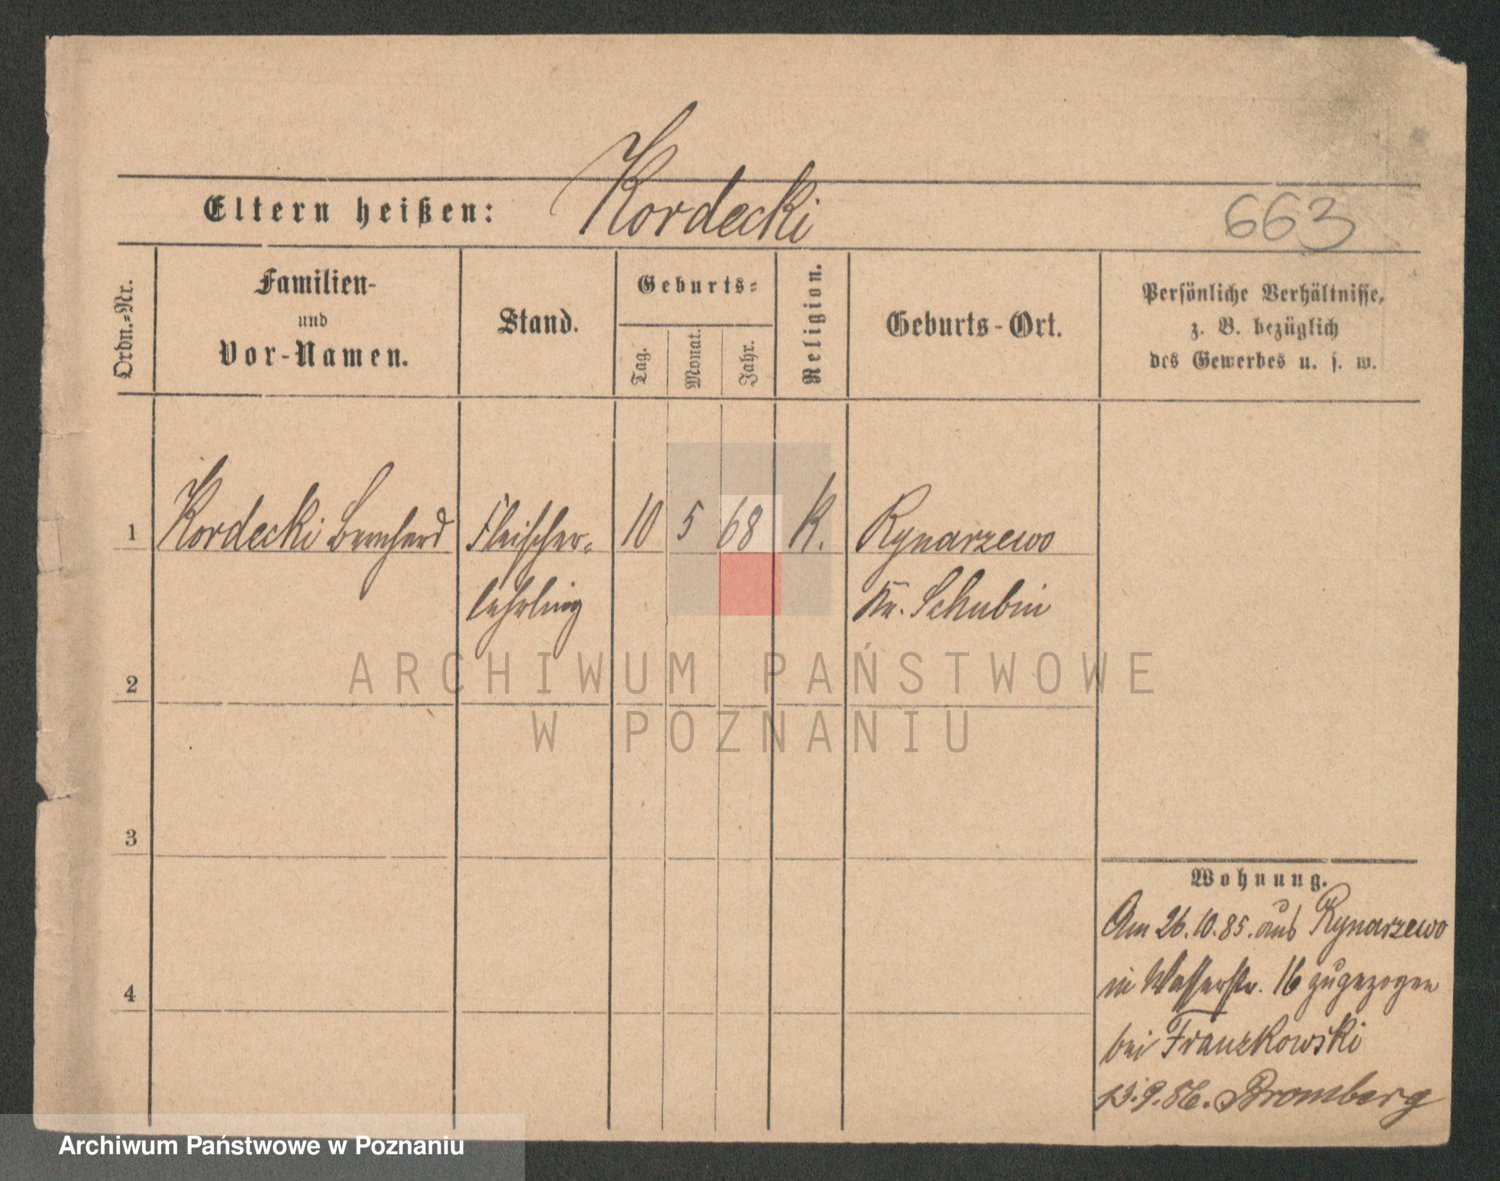 Eltern heißen: Kordecki
663
Ordn.-Nr.
Familien-
und
Vor-Namen.
Stand.
Geburts-
Tag.
Monat.
Jahr.
Religion.
Geburts-Ort.
Persönliche Verhältnisse,
z. B. bezüglich
des Gewerbes u. s. w.
1 Kordecki Bernhard Fleischer- 10 5 68 K. Rynarzewo
lehrling Kr. Schubin
2
3
4
Wohnung.
Am 26.10.85. aus Rynarzewo
in Wasserstr. 16 zugezogen
bei Franzkowski
13.9.86. Bromberg
ARCHIWUM PAŃSTWOWE
W POZNANIU
Archiwum Państwowe w Poznaniu